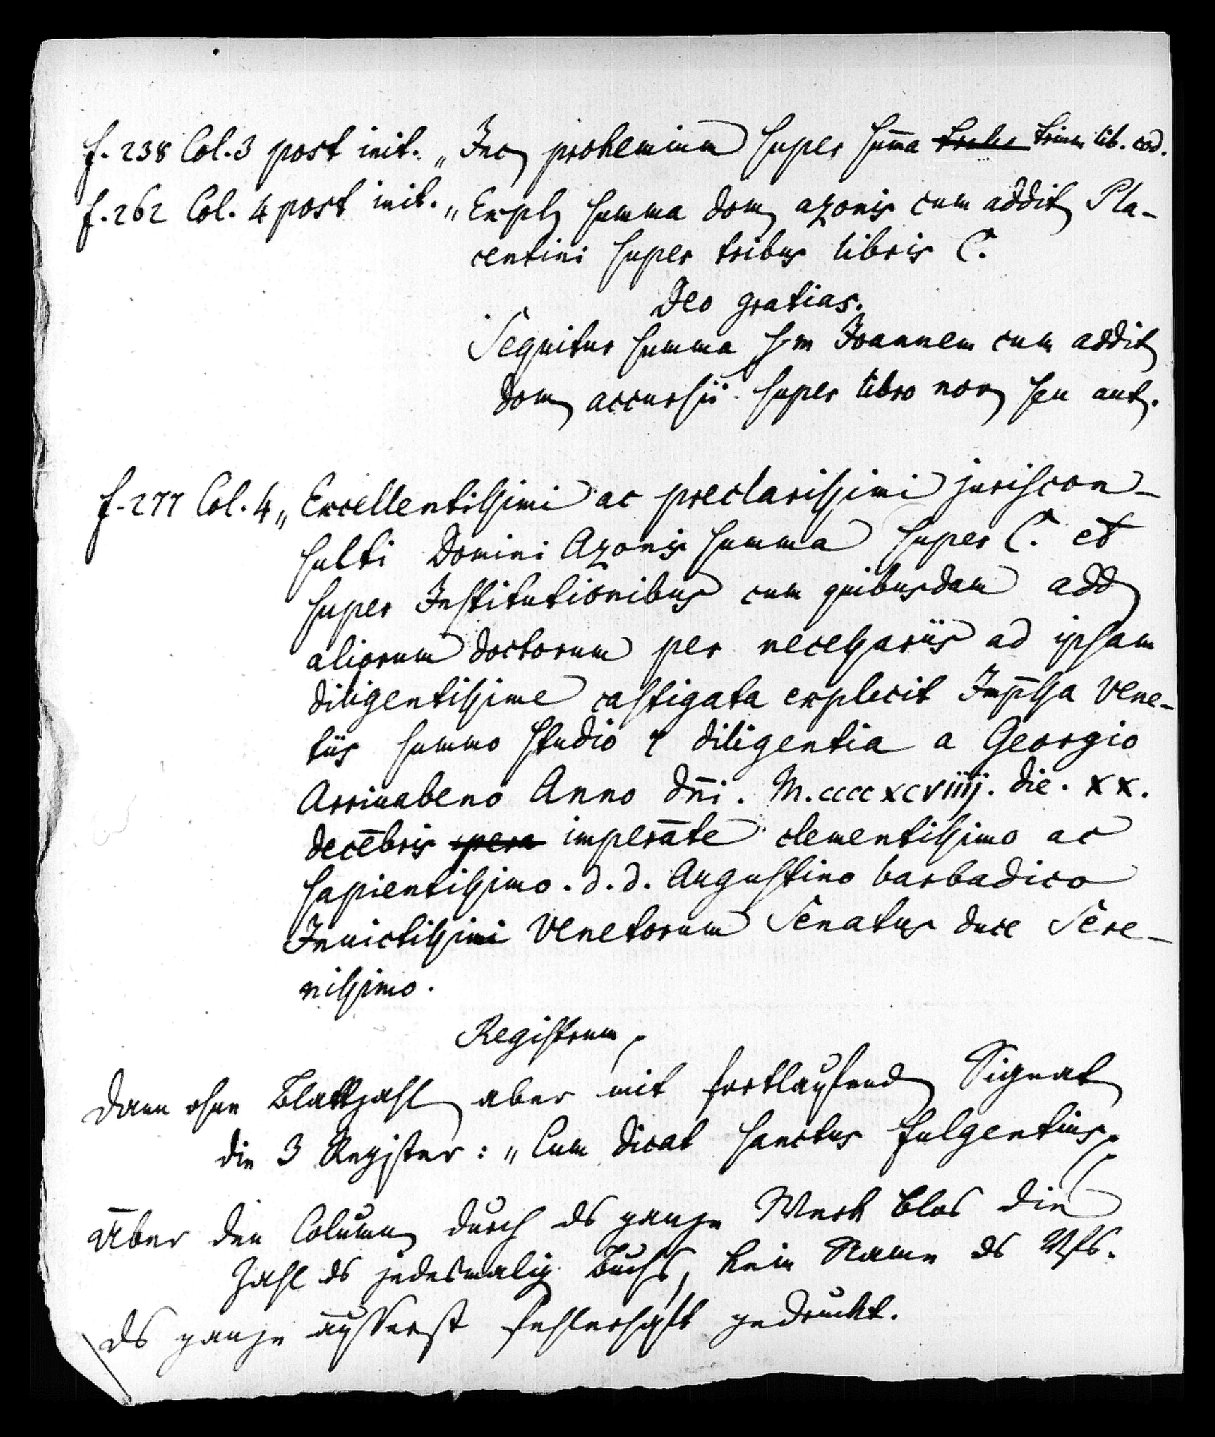 f. 238 Col. 3 post init. „Inc prohemium super sum̄a trium lib. cod.
f. 262 Col. 4 post init. „Expl summa dom azonis cum addit Pla-
centini super tribus libris C.
Deo gratias.
Sequitur summa s̄m Joannem cum addit
dom accursii super libro nov seu aut.
f. 277 Col. 4 „Excellentissimi ac preclarissimi juriscon-
sulti Domini Azonis summa super C. et
super Institutionibus cum quibusdam add
aliorum doctorum per necessariis ad ipsam
diligentissime castigata explicit Imp̄ssa Vene-
tiis summo studio & diligentia a Georgio
Arrivabeno Anno dn̄i. M.ccccxcviiij. die. xx.
decēbris imperāte clementissimo ac
sapientissimo. d. d. Augustino barbadico
Invictissimi Venetorum Senatus duce Sere-
nissimo.
Registrum
Dann ohne Blattzahl aber mit fortlaufend Signat
die 3 Register: „Cum dicat sanctus fulgentius.
Über den Column durch ds ganze Werk blos die
Zahl ds jedesmalig Buchs, kein Name ds Vfs.
ds ganze äusserst fehlerhaft gedruckt.